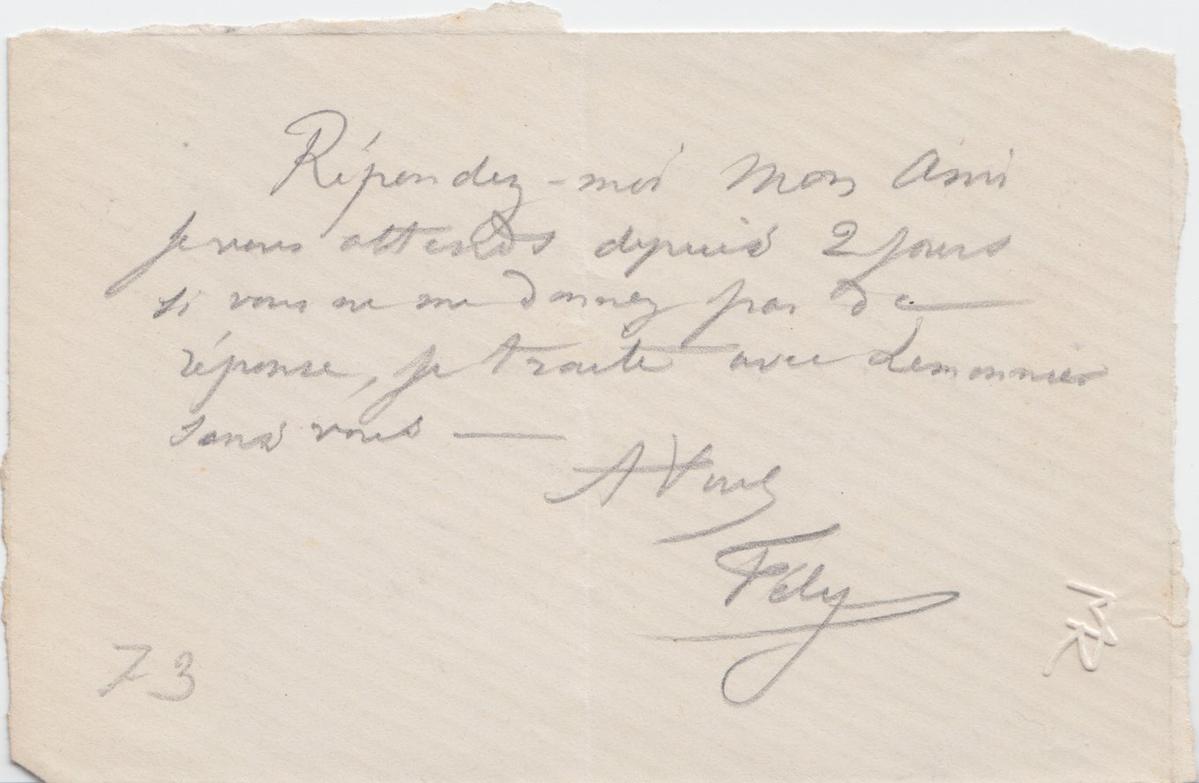 Répondez-moi Mon Ami
je vous attends depuis 2 jours
si vous ne me donnez pas de
réponse, je traite avec Lemonnier
sans vous —
A Vous
Fély
73